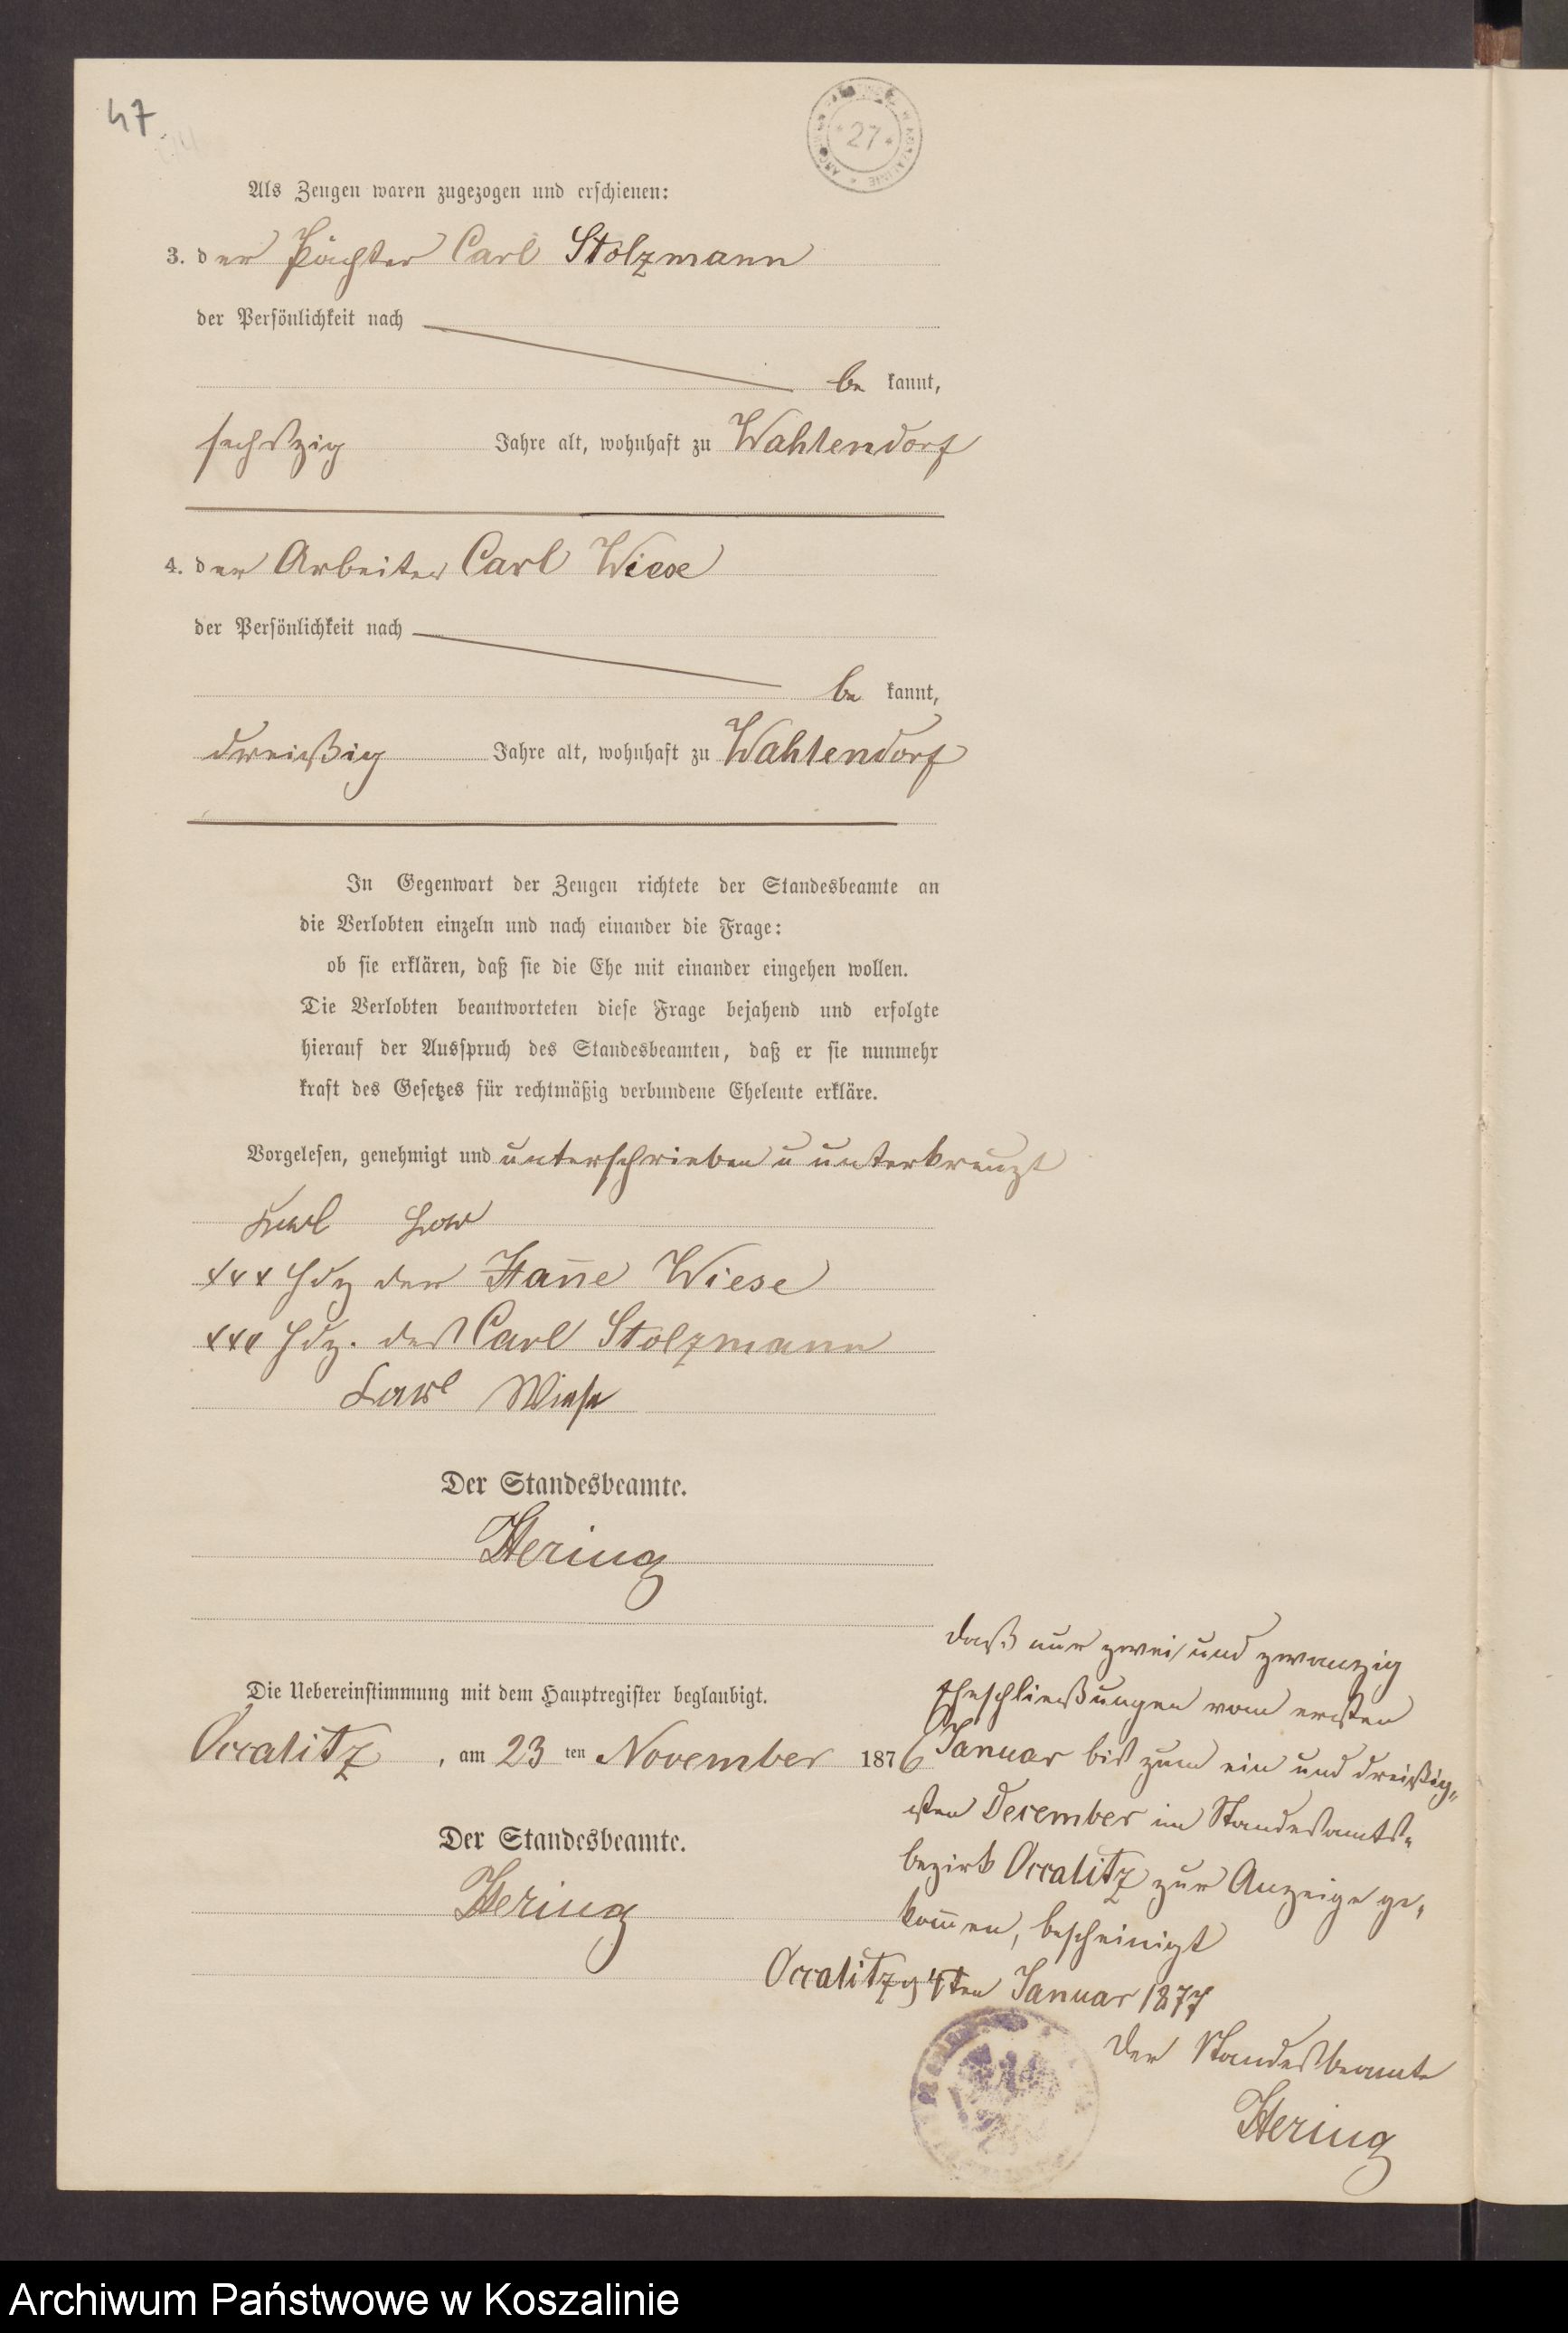 47
27
Als Zeugen waren zugezogen und erschienen:
3. der Pächter Carl Stolzmann
der Persönlichkeit nach
be kannt,
sechszig Jahre alt, wohnhaft zu Wahlendorf
4. der Arbeiter Carl Wiese
der Persönlichkeit nach
be kannt,
dreißig Jahre alt, wohnhaft zu Wahlendorf
In Gegenwart der Zeugen richtete der Standesbeamte an
die Verlobten einzeln und nach einander die Frage:
ob sie erklären, daß sie die Ehe mit einander eingehen wollen.
Die Verlobten beantworteten diese Frage bejahend und erfolgte
hierauf der Ausspruch des Standesbeamten, daß er sie nunmehr
kraft des Gesetzes für rechtmäßig verbundene Eheleute erkläre.
Vorgelesen, genehmigt und unterschrieben u unterkreuzt
Karl
xxx Hdz der Han̄e Wiese
xxx Hdz. des Carl Stolzmann
Carl Wiese
Der Standesbeamte.
Hering
Die Uebereinstimmung mit dem Hauptregister beglaubigt.
Occalitz, am 23 ten November 1876
Der Standesbeamte.
Hering
Daß nur zwei und zwanzig
Eheschließungen vom ersten
Januar bis zum ein und dreißig„
sten December im Standesamts„
bezirk Occalitz zur Anzeige ge„
kom̄en, bescheinigt
Occalitz 4ten Januar 1877
Der Standesbeamte
Hering
Archiwum Państwowe w Koszalinie